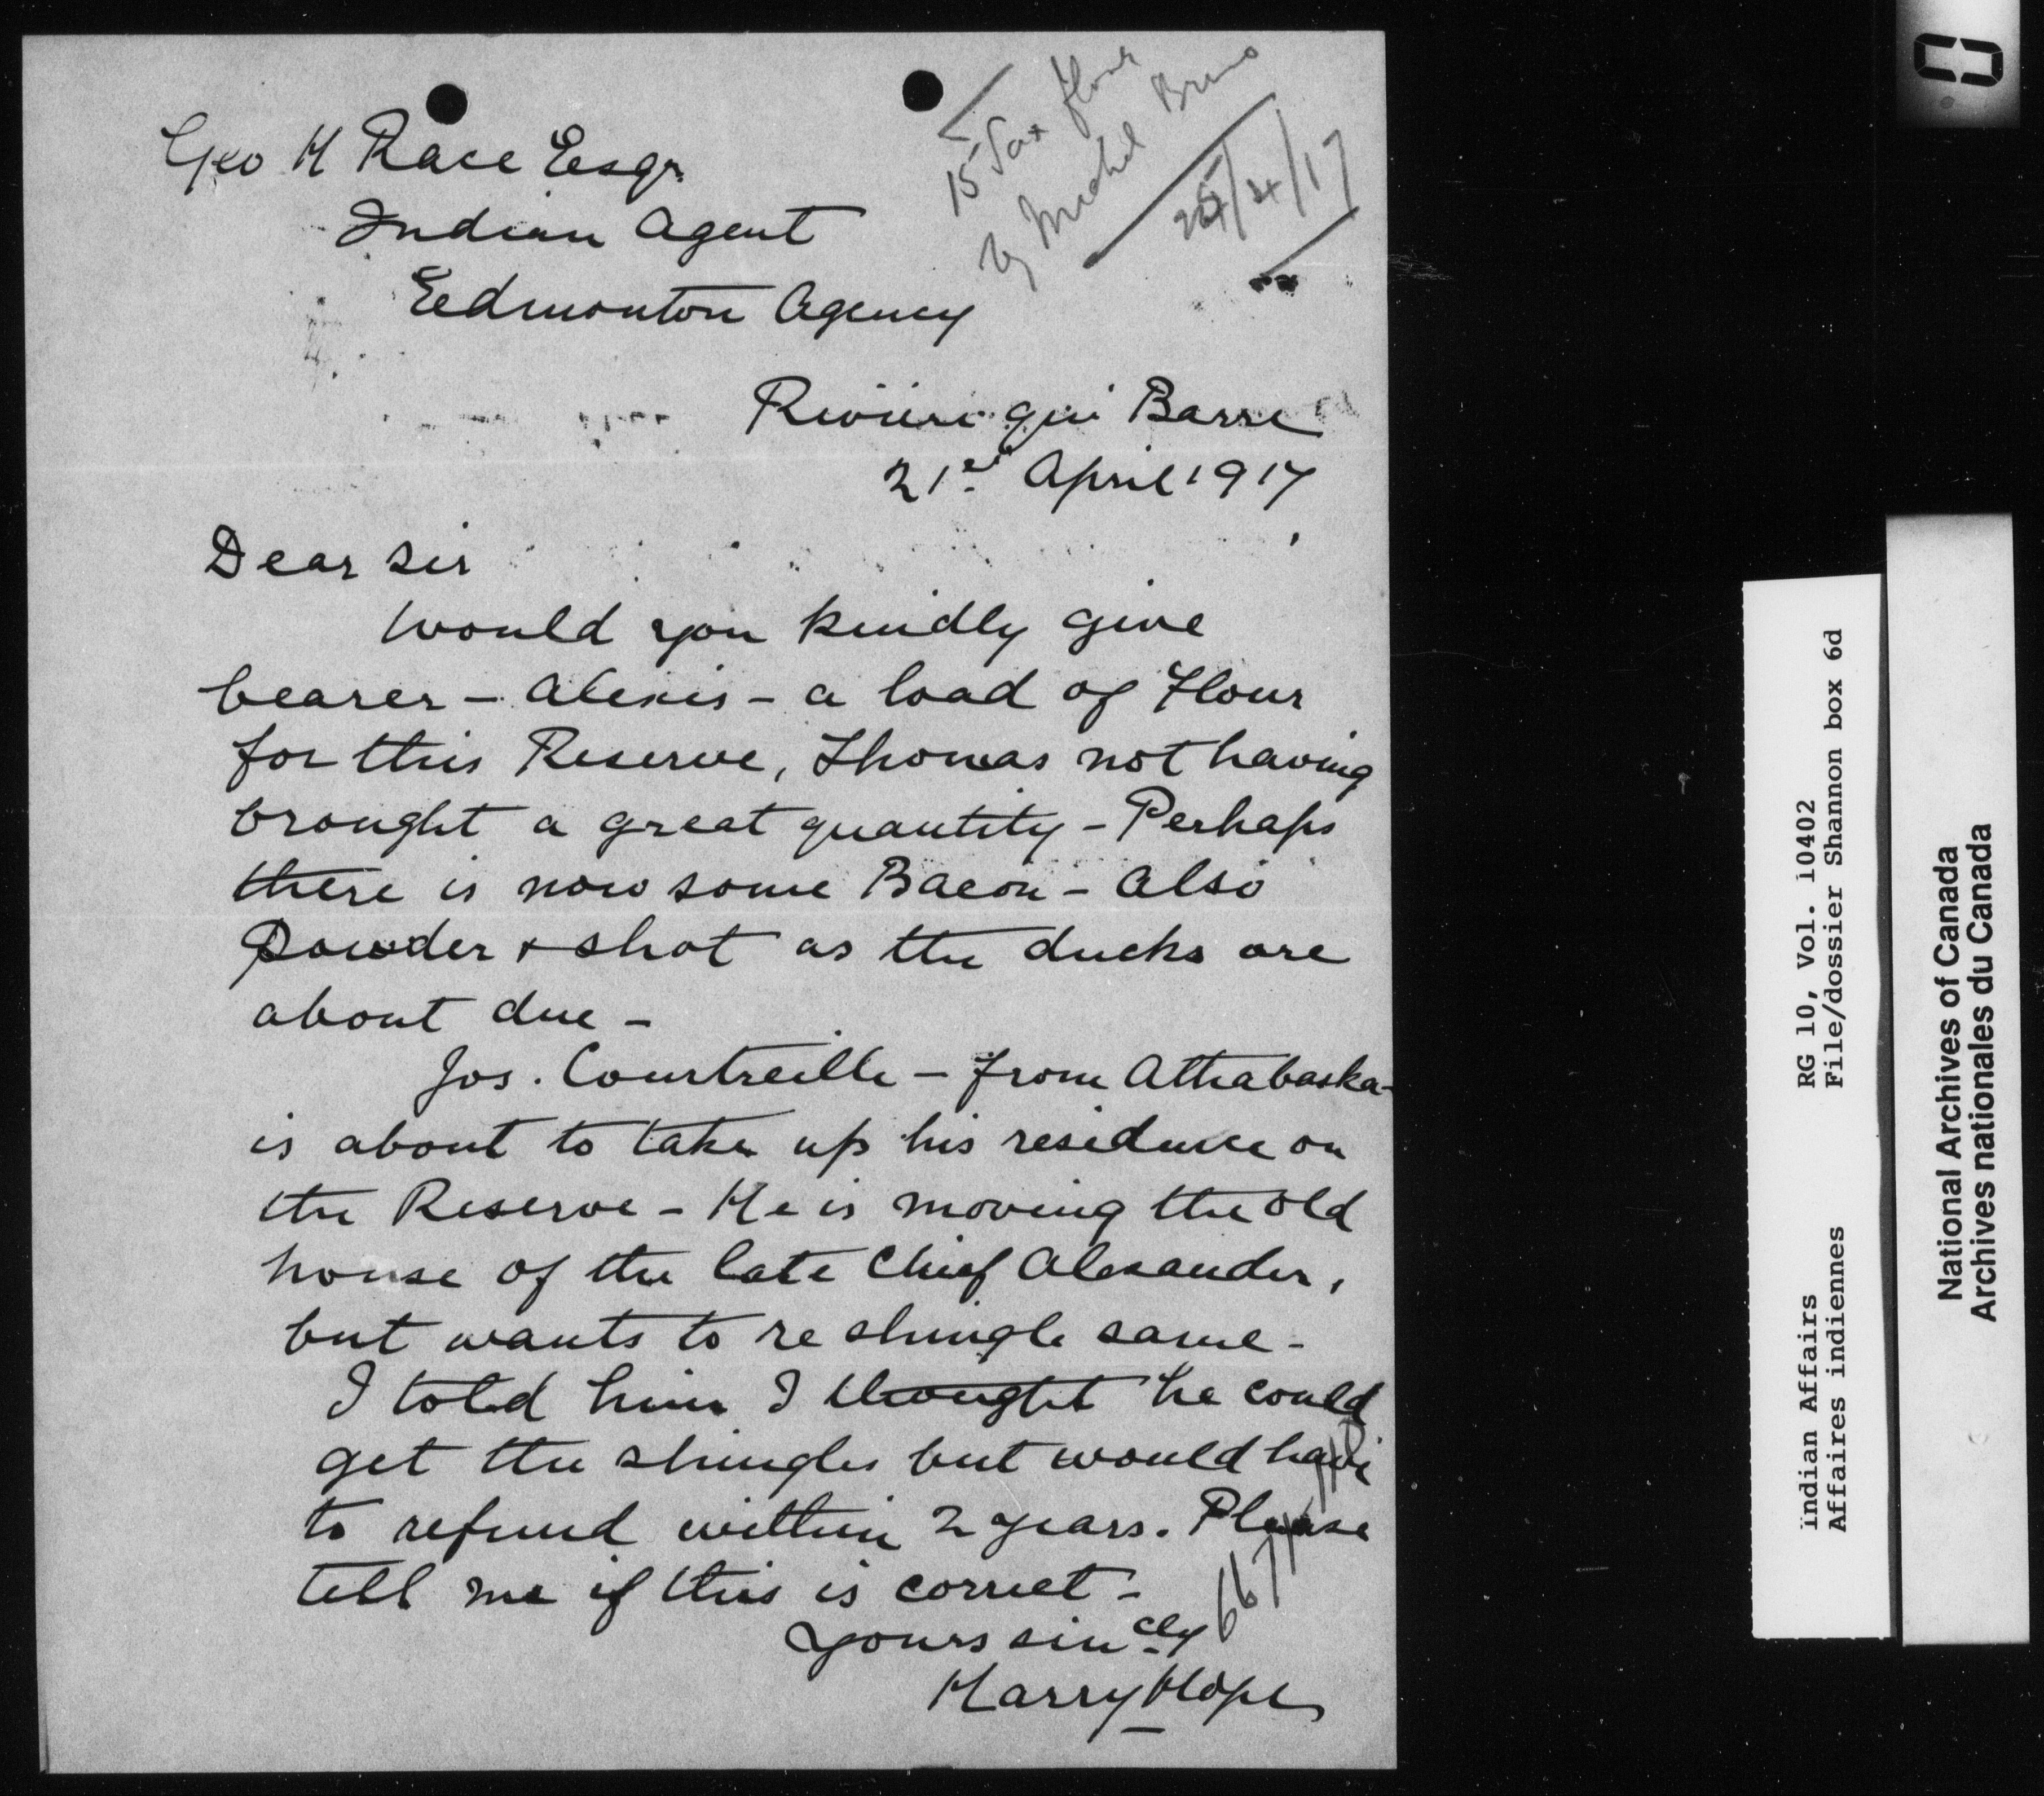 Geo H Race Esqr
Indian Agent
Edmonton Agency
15 Sax flour
by Michel Bruno
25/4/17
Riviere qui Barre
21st April 1917
Dear Sir
Would you kindly give
bearer – Alexis – a load of Flour
for this Reserve, Thomas not having
brought a great quantity – Perhaps
there is now some Bacon – Also
Powder + shot as the ducks are
about due –
Jos. Courtreille – from Athabaska –
is about to take up his residence on
the Reserve – He is moving the old
house of the late Chief Alexander,
but wants to re shingle same –
I told him I thought he could
get the shingles but would have
to refund within 2 years. Please
tell me if this is correct –
Yours sincly
Harry Hope
RG 10, Vol. 10402
File/dossier Shannon box 6d
Indian Affairs
Affaires indiennes
National Archives of Canada
Archives nationales du Canada